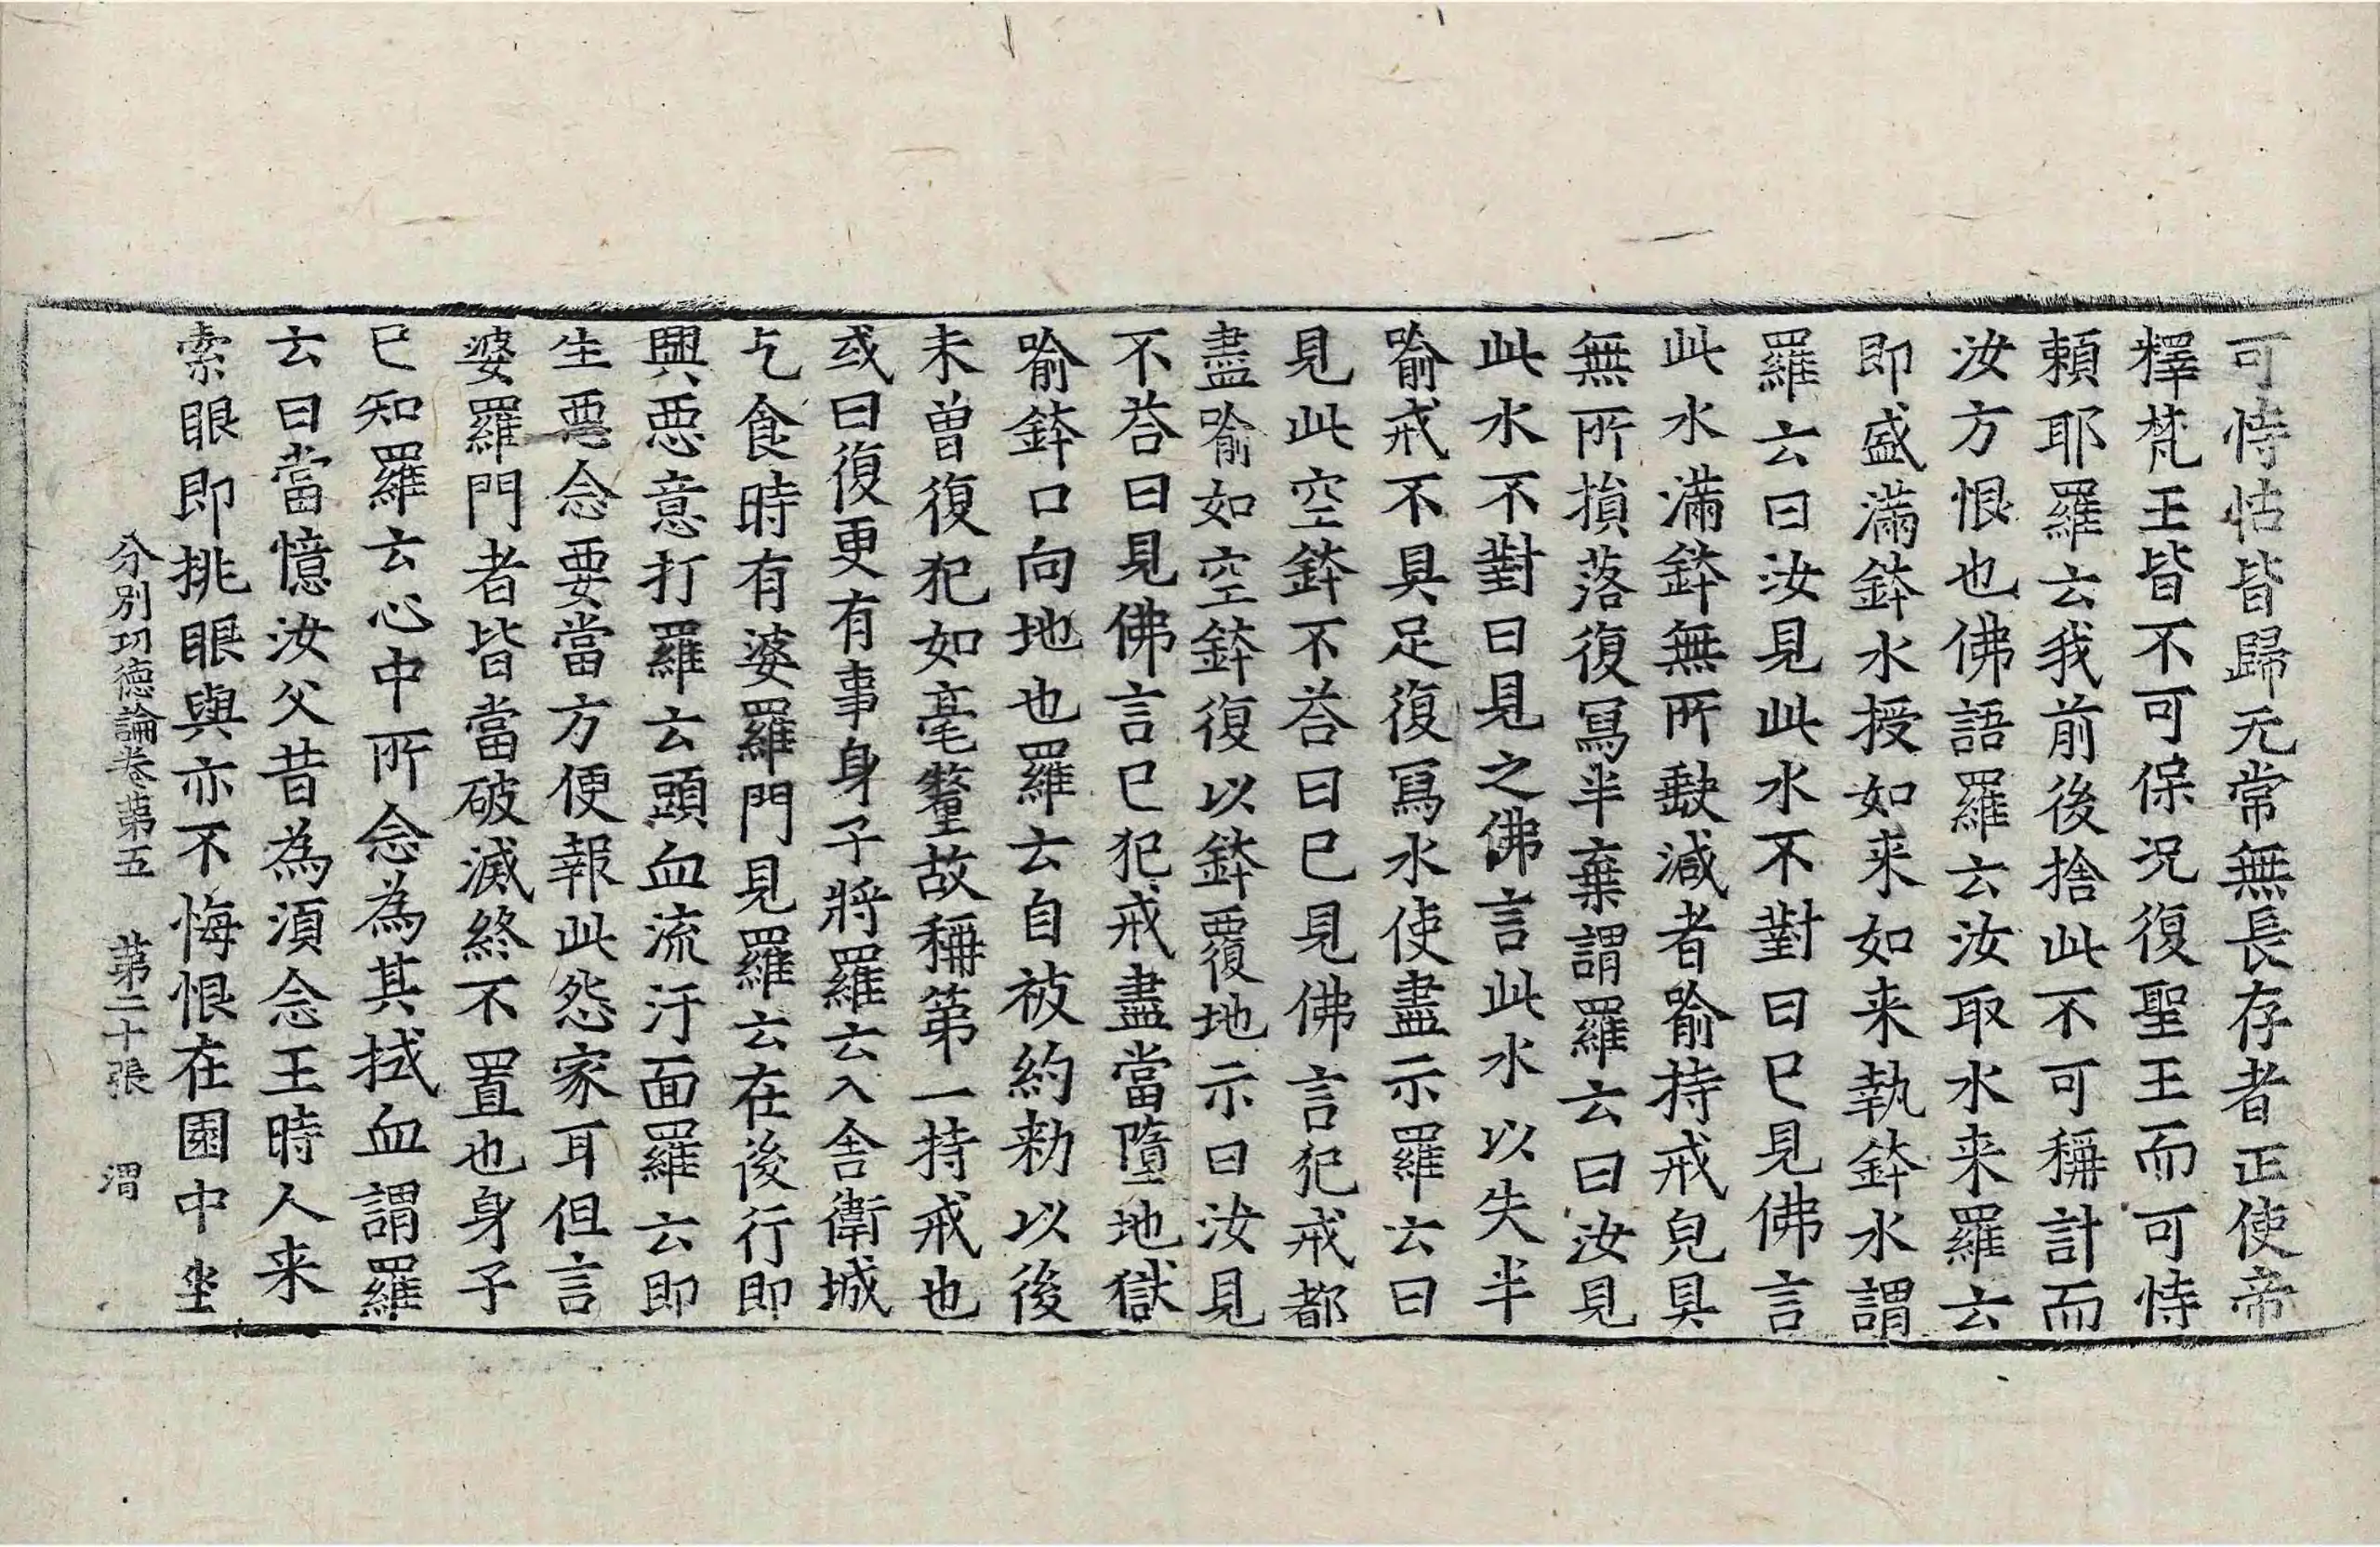 可恃怙皆歸无常無長存者正使帝
釋梵王皆不可保况復聖王而可恃
賴耶羅云我前後捨此不可稱計而
汝方恨也佛語羅云汝取水来羅云
即盛滿鉢水授如来如来執鉢水謂
羅云曰汝見此水不對曰已見佛言
此水滿鉢無所缺減者喻持戒皃具
無所損落復冩半棄謂羅云曰汝見
此水不對曰見之佛言此水以失半
喻戒不具足復冩水使盡示羅云曰
見此空鉢不荅曰已見佛言犯戒都
盡喻如空鉢復以鉢覆地示曰汝見
不荅曰見佛言已犯戒盡當墮地獄
喻鉢口向地也羅云自被約勑以後
未曽復犯如毫氂故稱第一持戒也
或曰復更有事身子將羅云入舍衛城
乞食時有婆羅門見羅云在後行即
興惡意打羅云頭血流汙面羅云即
生惡念要當方便報此怨家耳但言
婆羅門者皆當破滅終不置也身子
已知羅云心中所念為其拭血謂羅
云曰當憶汝父昔為須念王時人来
索眼即挑眼與亦不悔恨在園中坐
分別功徳論卷第五 第二十張 渭